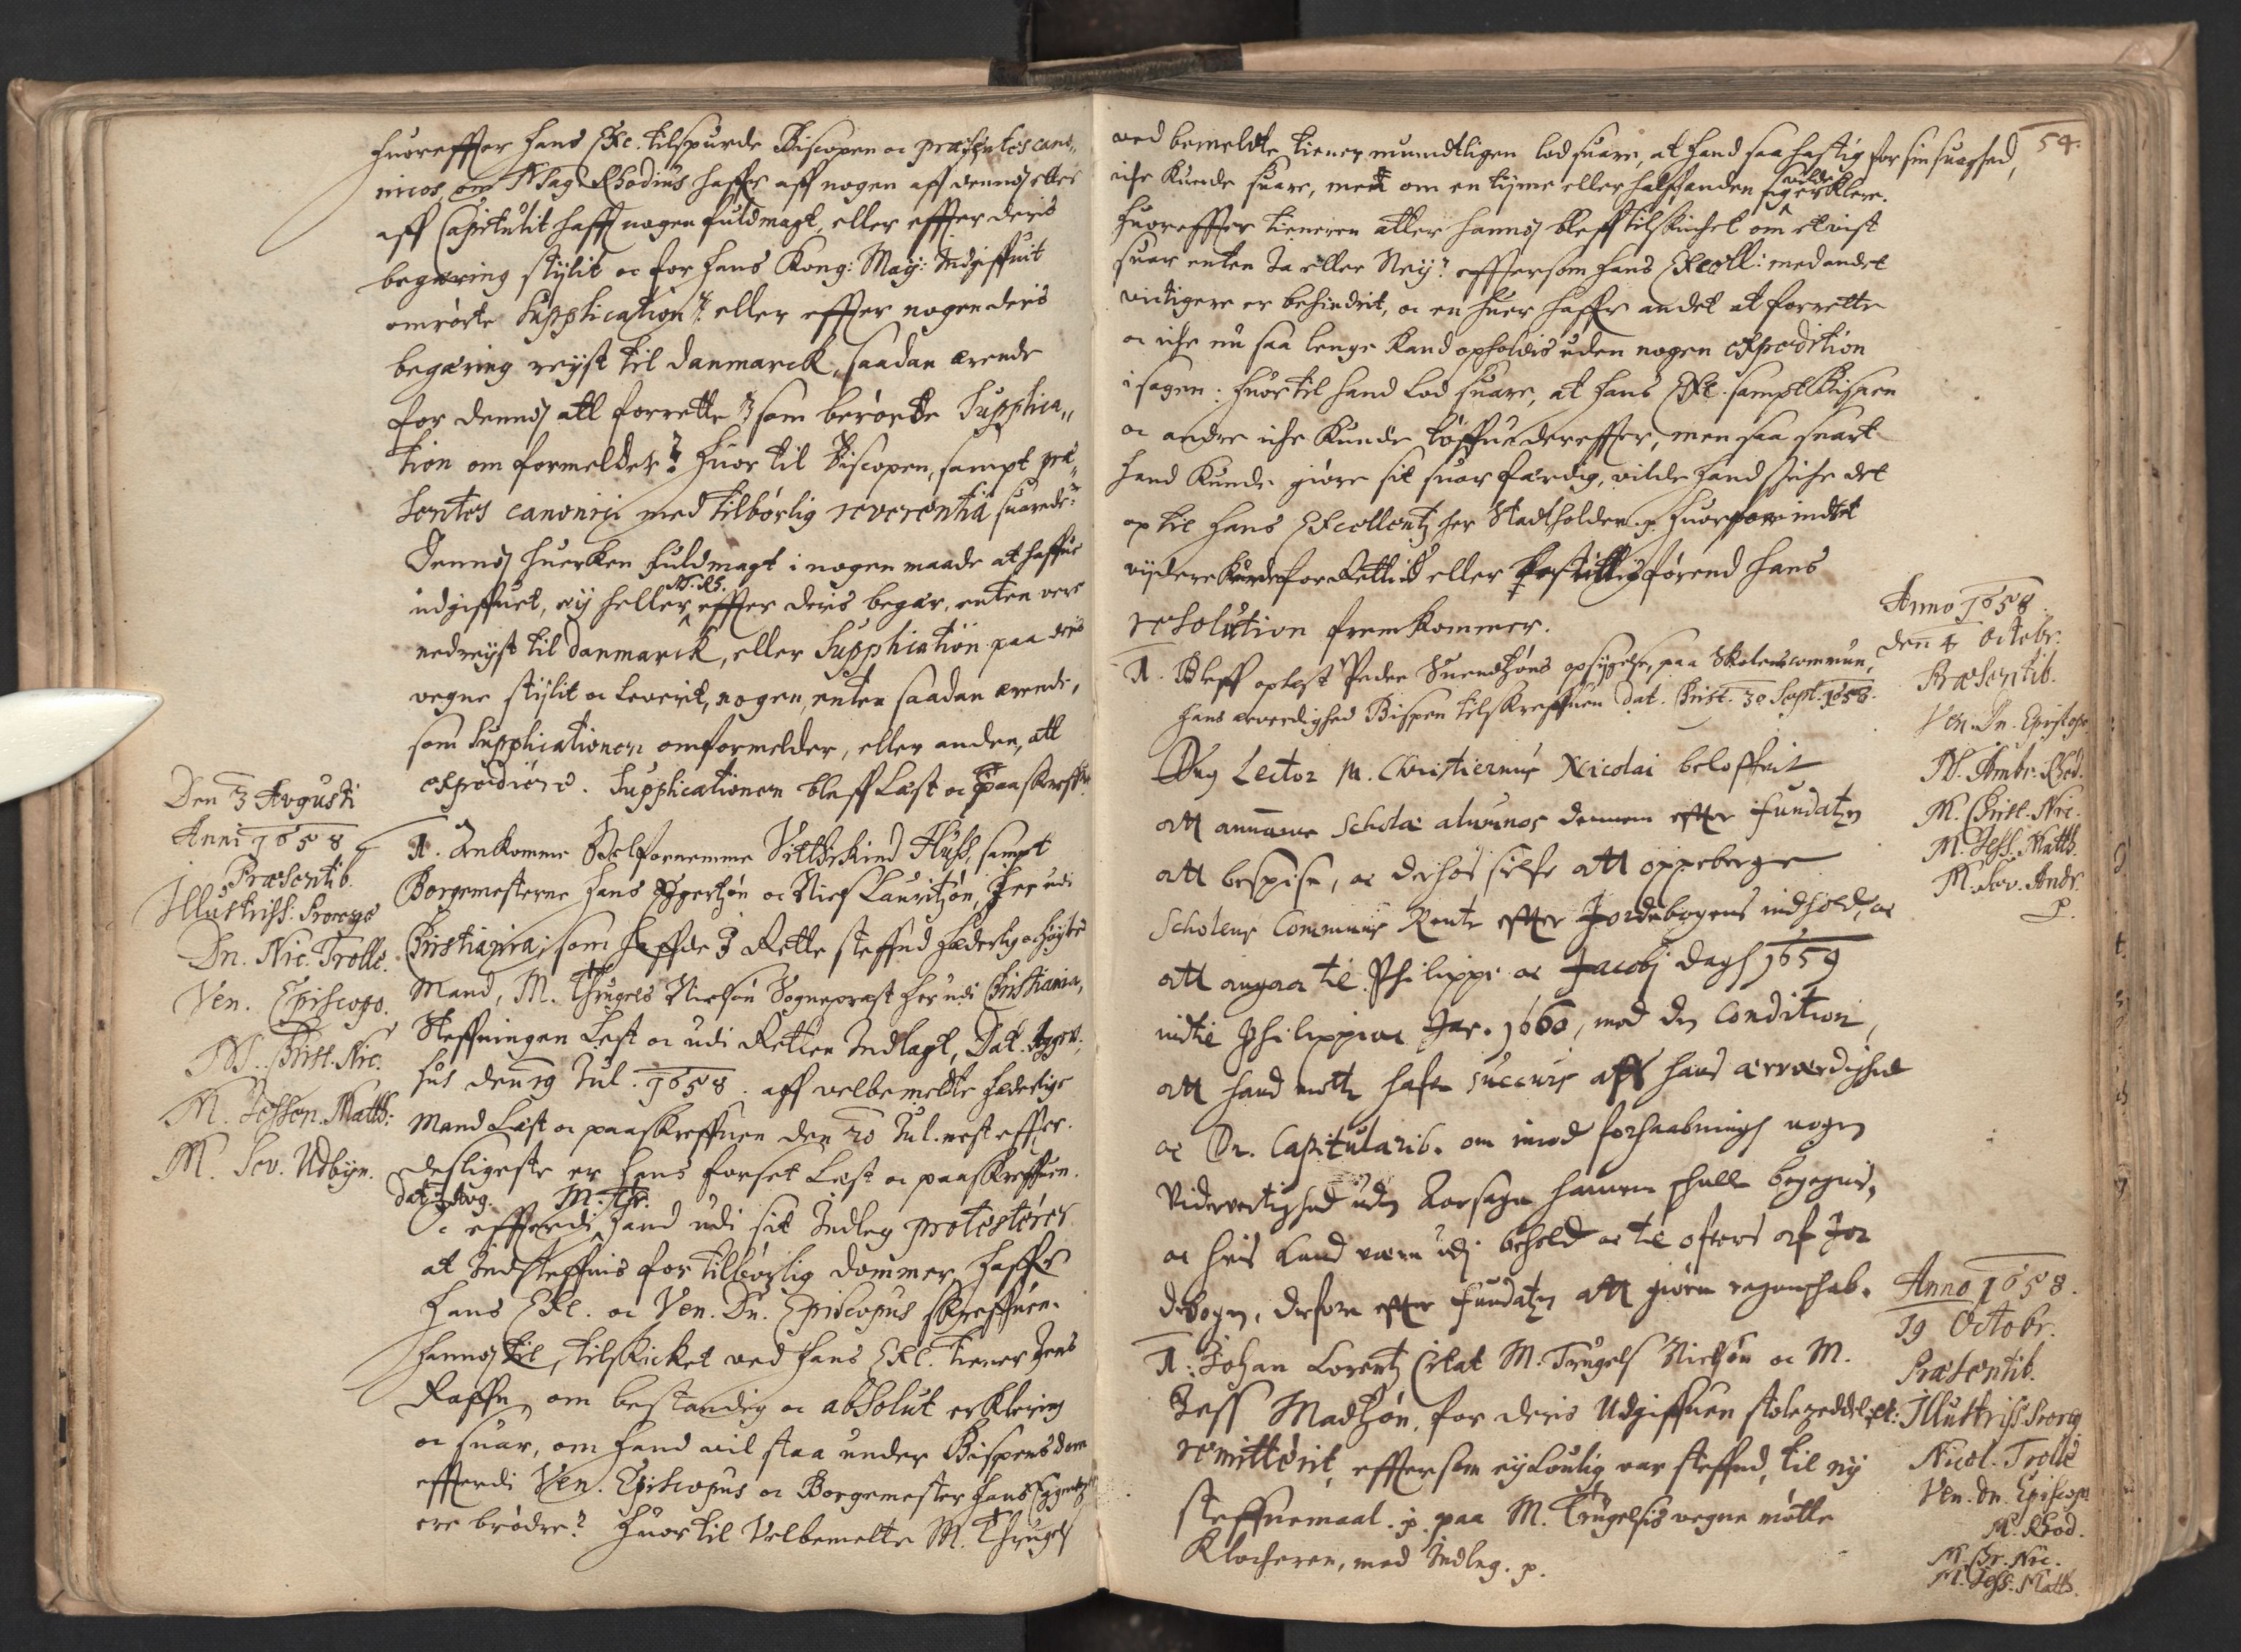 huoreffter hans Exc. tilspurde Biscopen oc præsentes cano„
nicos, om M Rhodius haffr aff nogen aff dennom eller
aff Capitulit hafft nogen fuldmagt, eller effter deris
begæring stylit oc for hans Kong: May: Indgiffuit
omrørte Supplication? eller effter nogen deris
begæring reyst til Danmarck, saadan ærende
for dennom att forrette som berørte Supplica„
tion om formelder? huor til Biscopen, sampt præ„
sentes canonici med tilbørlig reverentia suarede:
Dennom huerken fuldmagt i nogen maade at haffue
udgiffuet, ey heller M. Rh. effter deris begær, enten vere
nedreyst til Danmarck, eller Supplication paa deris
vegne stylit oc leverit, nogen, enten saadan ærende,
som Supplicationen omformelder, eller anden, att
expediere. Supplicationen bleff Læst oc paaskreffuen
Den 3 Avgusti
Anni 1658
Præsentib.
Illustriss. Prorege
Dn. Nic. Trolle.
Ven. Episcopo.
M. Christ. Nic.
M. Jesson. Matth:
M. Sev. Udbyn.
A. Ankomme Velfornemme Huss, sampt
Borgemesterne Hans Eggertzøn oc Niels Lauritzøn, her udi
Christiania, som haffde I Rette steffnd hæderlig oc høylerde
Mand, M. Thrugels Nielsøn Sognepræst her udi Christiania,
Steffningen Lest oc udi Retten Indlagt, Dat. Agger„
hus den 19 Jul. 1658. aff velbemeldte hæderlige
Mand Læst oc paaskreffuen den 20 Jul. nest effter.
desligeste er hans forset Læst oc paaskreffuen.
dat. 3 Aug.
Oc effterdi M. Thr. hand udi sit Indleg protesterer
at Indsteffnis for tilbørlig dommer, haffr
Hans Exc. oc Ven. Dn. Episcopus skreffuen
hannom til, tilskicket ved hans Exc. tiener Jens
Raffn, om bestandig oc absolut erklæring
oc suar, om hand vil staa under Bispens dom
effterdi Ven. Episcopus oc Borgemester Hans Eggertzøn
ere brødre? huor til Velbemelte M. Thrugels
54.
ved bemeldte tiener mundtligen lod suare, at hand saa hastig for sin suaghed,
iche kunde suare, men om en tyme eller halffanden vilde sig erklere.
Huoreffter tieneren atter hannom bleff tilskichet om et vist
suar enten Ja eller Ney? efftersom hans Excell: med andet
vichtigere er behindrit, oc en huer haffr andet at forrette
oc iche nu saa lenge kand opholdis uden nogen expedition
i sagen: huor til hand lod suare, at hans Exc. sampt Bispen
oc andre iche kunde tøffue dereffter, men saa snart
hand kunde giøre sit suar færdig, vilde hand skiche det
op til hans Excellentz her Statholder. p. huorfore indtet
vydere kunde forrettis eller før end hans
resolution fremkommer.
Anno 1658
den 4 Octobr.
Præsentib.
Ven. Dn. Episcopo
M. Ambr. Rhod.
M. Christ. Nic.
M. Jess. Matth.
M. Sev. Andr.
p.
A. Bleff oplæst Peder Suendtzøns opsigelse, paa Skolens commun,
hans ærverdighed Bispen tilskreffuen dat. Christ. 30 Sept. 1658.
Lector M. Christiernus Nicolai beloffuit
att annamme Scholæ alumnos dennem effter fundatzen
att bespise, oc derhos sielfe att oppeberge
Scholens Communs Rente effter Jordebogens indhold, oc
att angaa til Philippi oc Jacobi dagh 1659
indtil Philippi oc Jac. 1660, med den condition,
att hand motte hafue succurs aff hans ærværdighed
oc Dn. Capitularib. om imod forhaabningh nogen
Vidervertighed uden aarsage hannem skulle begegnis,
oc hvis kand være udj behold oc til ofuers af Jor
debogen, derfore effter fundatzen att giøre regenskab.
Anno 1658.
19 Octobr.
Præsentib.
Illustriss. Proreg
Nicol. Trolle
Ven. Dn. Episcopo
M. Rhod.
M. Chr. Nic.
M. Jess. Matth.
A: Johan Lorentz Citat M. Trugels Nielsøn oc M.
Jess Madtzøn, for deris Udgiffuen stolezeddel, et:
remitterit, efftersom ey louglig var steffnd, til ny
steffnemaal. p. paa M. Trugelsis vegne møtte
Klocheren, med Indleg. p.